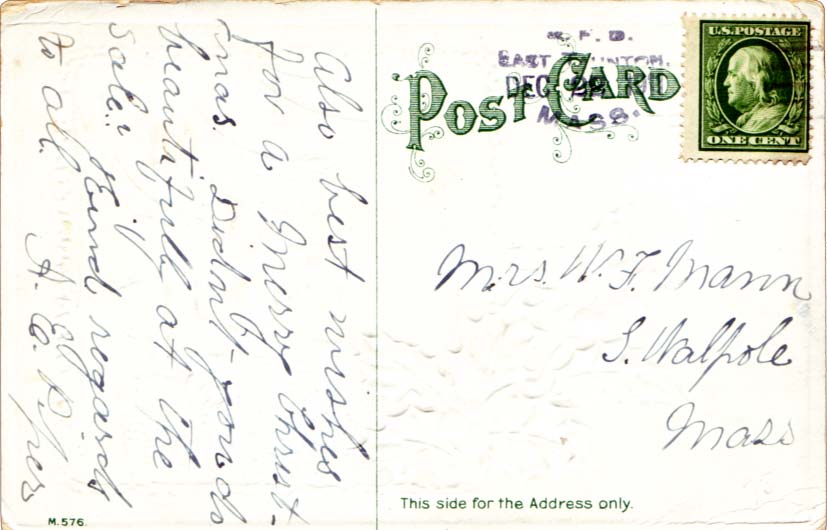 Also best wishes
for a Merry Christ-
mas. Didn't you do
beautifully at the
sale!! Kind regards
to all.
M.576.
POST CARD
R. F. D.
EAST TAUNTON,
DEC 22
MASS.
U.S. POSTAGE
ONE CENT
Mrs. W. F. Mann
S. Walpole
Mass
This side for the Address only.